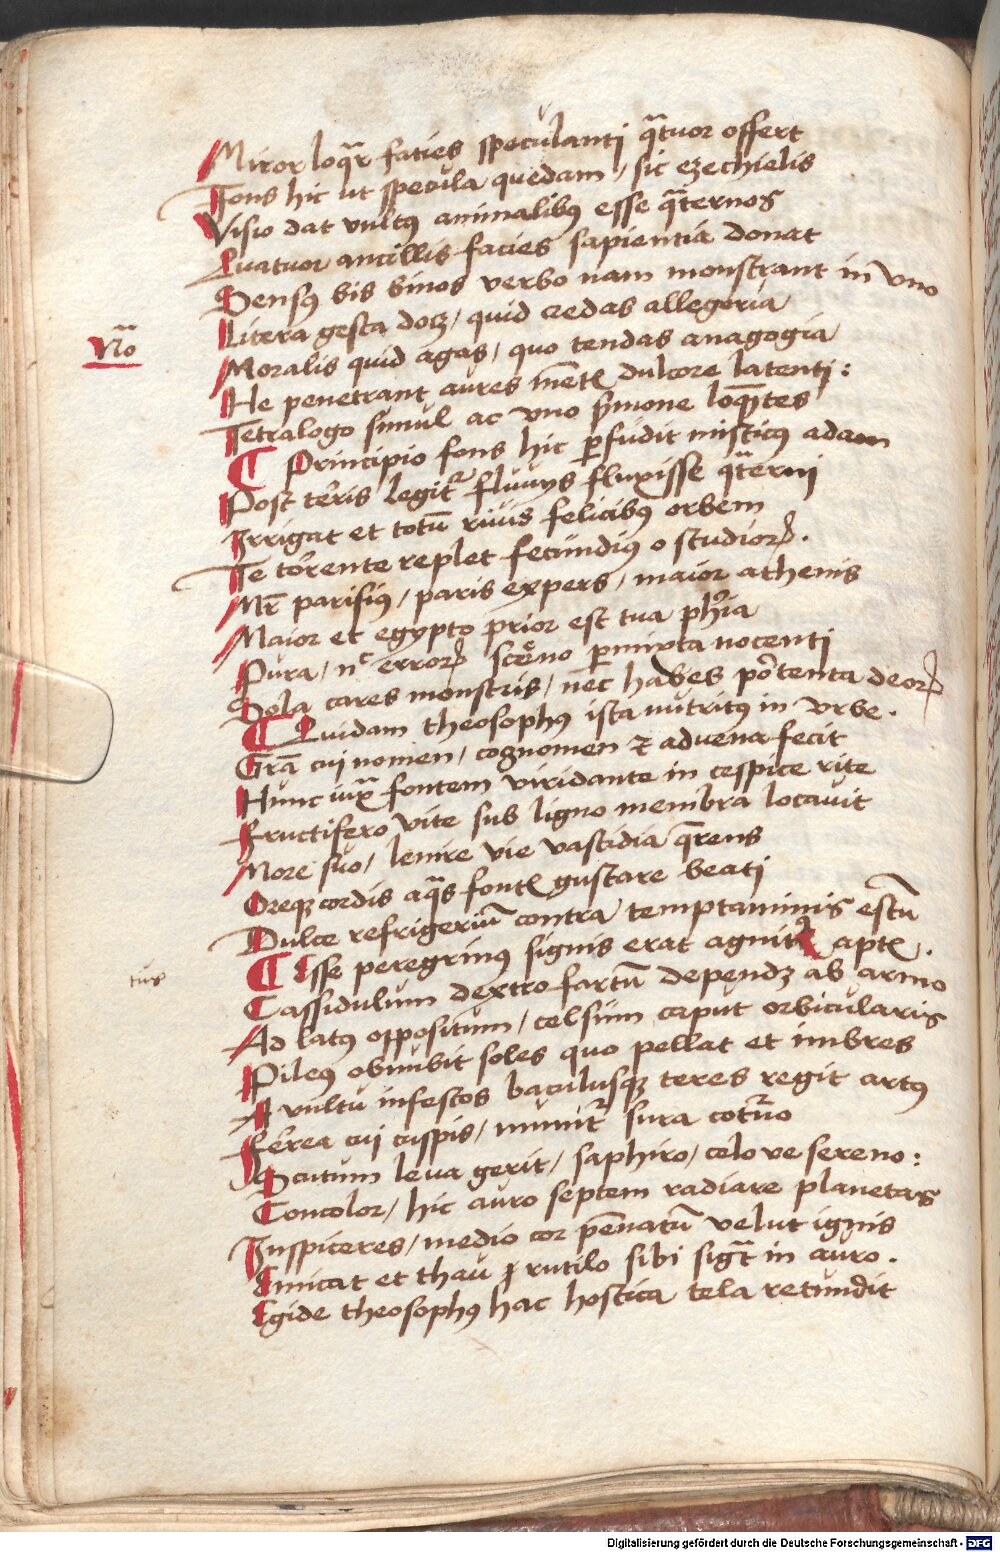 Miror loqr̄ facies speculanti qͣtuor offert
Fons hic ut specula quedam / sic ezechielis
Visio dat vultꝰ animalibꝰ esse qͣternos
Quatuor ancillis facies sapientia donat
Sensꝰ bis binos verbo nam monstrant in vno
Litera gesta docꝫ / quid credas allegoria
No
Moralis quid agas / quo tendas anagogia
He penetrant aures mētꝭ dulcore latenti :
Tetralogo simul ac vno s̄mone loqn̄tes
Principio fons hic ꝑfudit misticꝰ adam
Post terris legitᷣ fluuijs fluxisse qͣterni
Irrigat et totū riuis felicibꝰ orbem
Te torrente replet fecundiꝰ o studioꝝ .
Mr̄ parisiꝰ / paris expers / maior athenis
Maior et egypto prior est tua ph̓ia
Pura / nͨ erroꝝ ꝑmixta nocenti
Sola cares monstris / nec habes portenta deoꝝ
Quidam theosophꝰ ista nutritꝰ in vrbe .
Grā cui nomen / cognomen ⁊ aduena fecit
Hunc iuxͣ fontem viridante in cespice rite
Fructifero vite sub ligno membra locauit
More suo / lenire vie vastidia qr̄ens
Oreqꝫ cordis aqͣs fontꝭ gustare beati
Dulce refrigeriū contra temptaminis estū
Esse peregrinꝰ signis erat agnitꝰ aptꝭ .
tus
Cassidulum dextro fartū dependꝫ ab armo
Ad latꝰ oppositum / celsum caput orbicularis
Pileꝰ obnubit soles quo pellat et imbres
A vultu infestos baculusqꝫ teres regit artꝰ
Ferrea cui cuspis / munitᷣ sura coturno
Scutum leua gerit / saphiro / celo ve sereno :
Concolor / hic auro septem radiare planetas
Inspiceres / medio cor pēnatū velut ignis
Emicat et thau ꝓ rutilo sibi sigͣt in auro .
Egide theosophꝰ hac hostica tela retundit
Digitalisierung gefördert durch die Deutsche Forschungsgemeinschaft - DFG